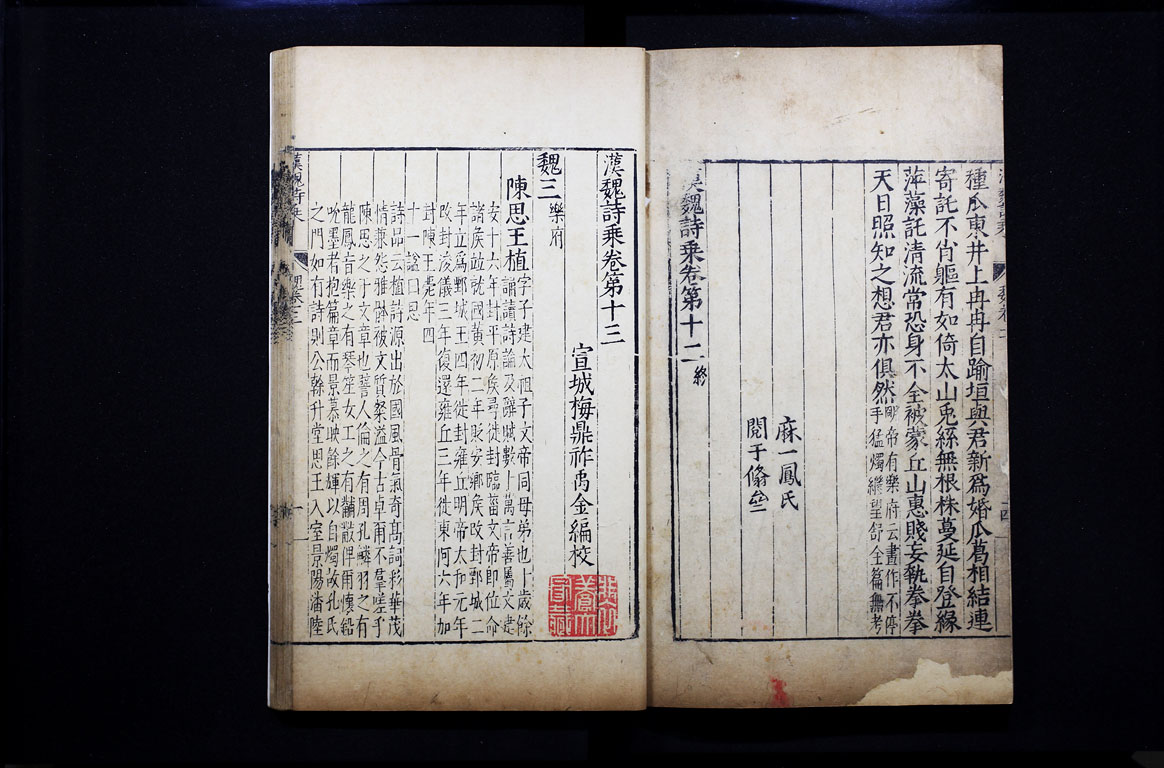 種瓜東井上冉冉自踰垣與君新爲婚瓜葛相結連
寄託不肖軀有如倚太山兎絲無根株蔓延自登緣
萍藻託清流常恐身不全被蒙丘山惠賤妾執拳拳
天日照知之想君亦俱然
帝有樂府云晝作不停
手猛燭繼望舒全篇無考
麻一鳳氏
閱于脩壘
魏詩乘卷第十二終
漢魏詩乘卷第十三
宣城梅鼎祚禹金編校
魏三樂府
陳思王植
字子建太祖子文帝同母弟也十歲餘
誦讀詩論及辭賦數十萬言善屬文建
安十六年封平原侯尋徙封臨菑文帝即位命
諸侯竝就國黃初二年貶安鄉侯改封鄄城二
年立爲鄄城王四年徙封雍丘明帝太和元年
改封浚儀三年復還雍丘三年徙東阿六年加
封陳王薨年四
十一諡曰思
詩品云植詩源出於國風骨氣奇髙詞彩華茂
情兼怨雅體被文質粲溢今古卓爾不羣嗟乎
陳思之于文章也譬人倫之有周孔鱗羽之有
龍鳳音樂之有琴笙女工之有黼黻俾爾懷鉛
吮墨者抱篇章而景慕映餘輝以自燭故孔氏
之門如有詩則公幹升堂思王入室景陽潘陸